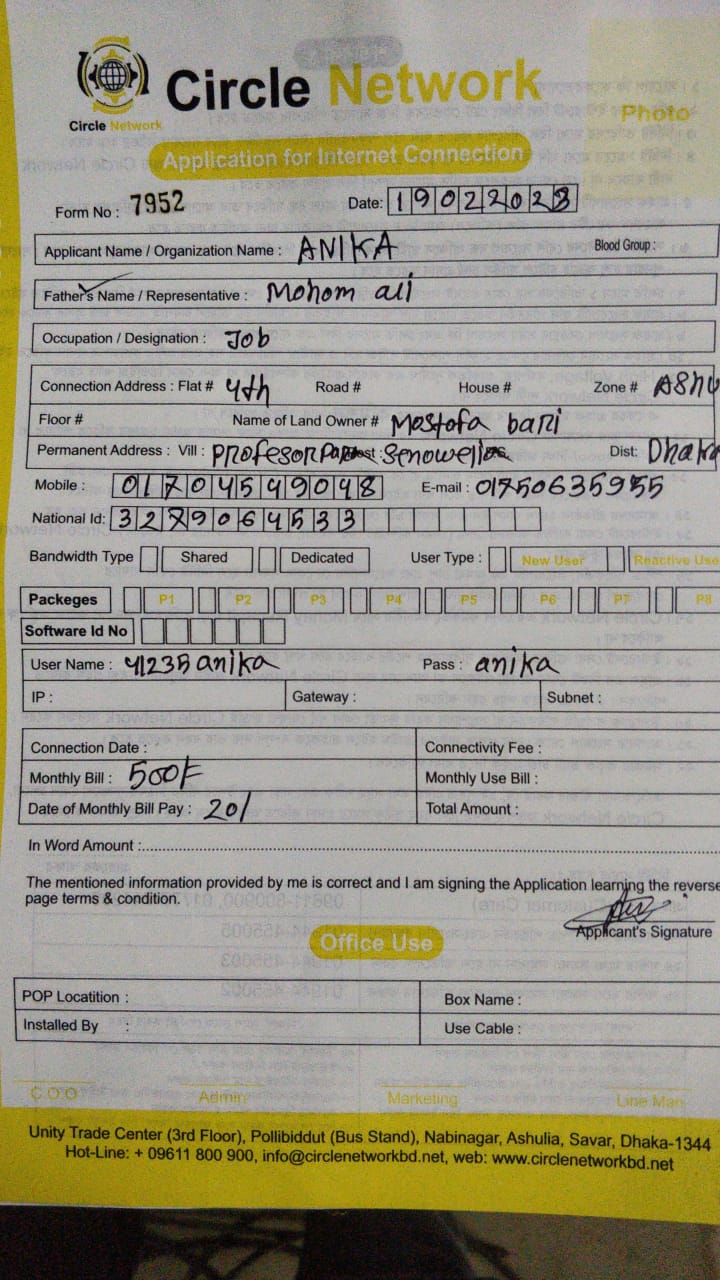 Circle Network
Circle Network
Photo
Application for Internet Connection
Form No : 7952
Date: 19022023
Applicant Name / Organization Name : ANIKA
Blood Group :
Father's Name / Representative : Mohom ali
Occupation / Designation : Job
Connection Address : Flat # 4th Road # House # Zone #
Floor # Name of Land Owner # Mostofa bari
Permanent Address : Vill : Dist: Dhaka
Mobile : 01704549048 E-mail : 01750635955
National Id: 3279064533
Bandwidth Type Shared Dedicated User Type : New User Reactive Use
Packeges P1 P2 P3 P4 P5 P6 P7 P8
Software Id No
User Name : 41235anika Pass : anika
IP : Gateway : Subnet :
Connection Date : Connectivity Fee :
Monthly Bill : 500/- Monthly Use Bill :
Date of Monthly Bill Pay : 20/ Total Amount :
In Word Amount :
The mentioned information provided by me is correct and I am signing the Application learning the reverse
page terms & condition.
Applicant's Signature
Office Use
POP Locatition : Box Name :
Installed By : Use Cable :
C.O.O Admin Marketing Line Man
Unity Trade Center (3rd Floor), Pollibiddut (Bus Stand), Nabinagar, Ashulia, Savar, Dhaka-1344
Hot-Line: + 09611 800 900, info@circlenetworkbd.net, web: www.circlenetworkbd.net